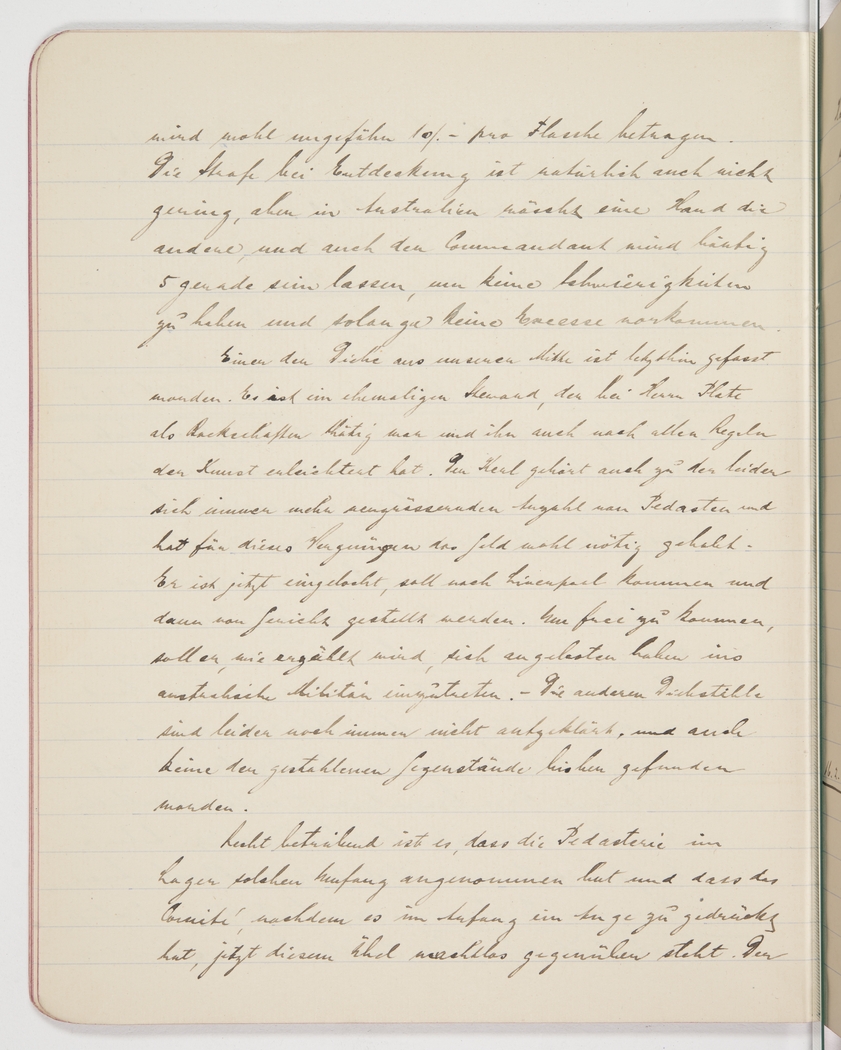 wird wohl ungefähr 10/.- pro Flasche betragen.
Die Strafe bei Entdeckung ist natürlich auch nicht
gering, aber in Australien wäscht eine Hand die
andere, und auch der Commandant wird häufig
5 gerade sein lassen, um keine Schwierigkeiten
zu haben und solange keine Excesse vorkommen.
Einer der Diebe aus unserer Mitte ist letzthin gefasst
worden. Es ist ein ehemaliger Steward, der bei Herrn Plate
als tätig war und ihn auch nach allen Regeln
der Kunst erleichtert hat. Der Kerl gehört auch zu der leider
sich immer mehr vergrössernden Anzahl von Pedasten und
hat für dieses Vergnügen das Geld wohl nötig gehabt.
Er ist jetzt eingelocht, soll nach Liverpool kommen und
dann vor Gericht gestellt werden. Um frei zu kommen,
soll er, wie erzählt wird, sich angeboten haben ins
australische Militär einzutreten. - Die anderen Diebstähle
sind leider noch immer nicht aufgeklärt, und auch
keine der gestohlenen Gegenstände bisher gefunden
worden.
Recht betrübend ist es, dass die Pedasterie im
Lager solchen Umfang angenommen hat und dass das
Comité, nachdem es im Anfang ein Auge zu gedrückt
hat, jetzt diesem Übel machtlos gegenüber steht. Der